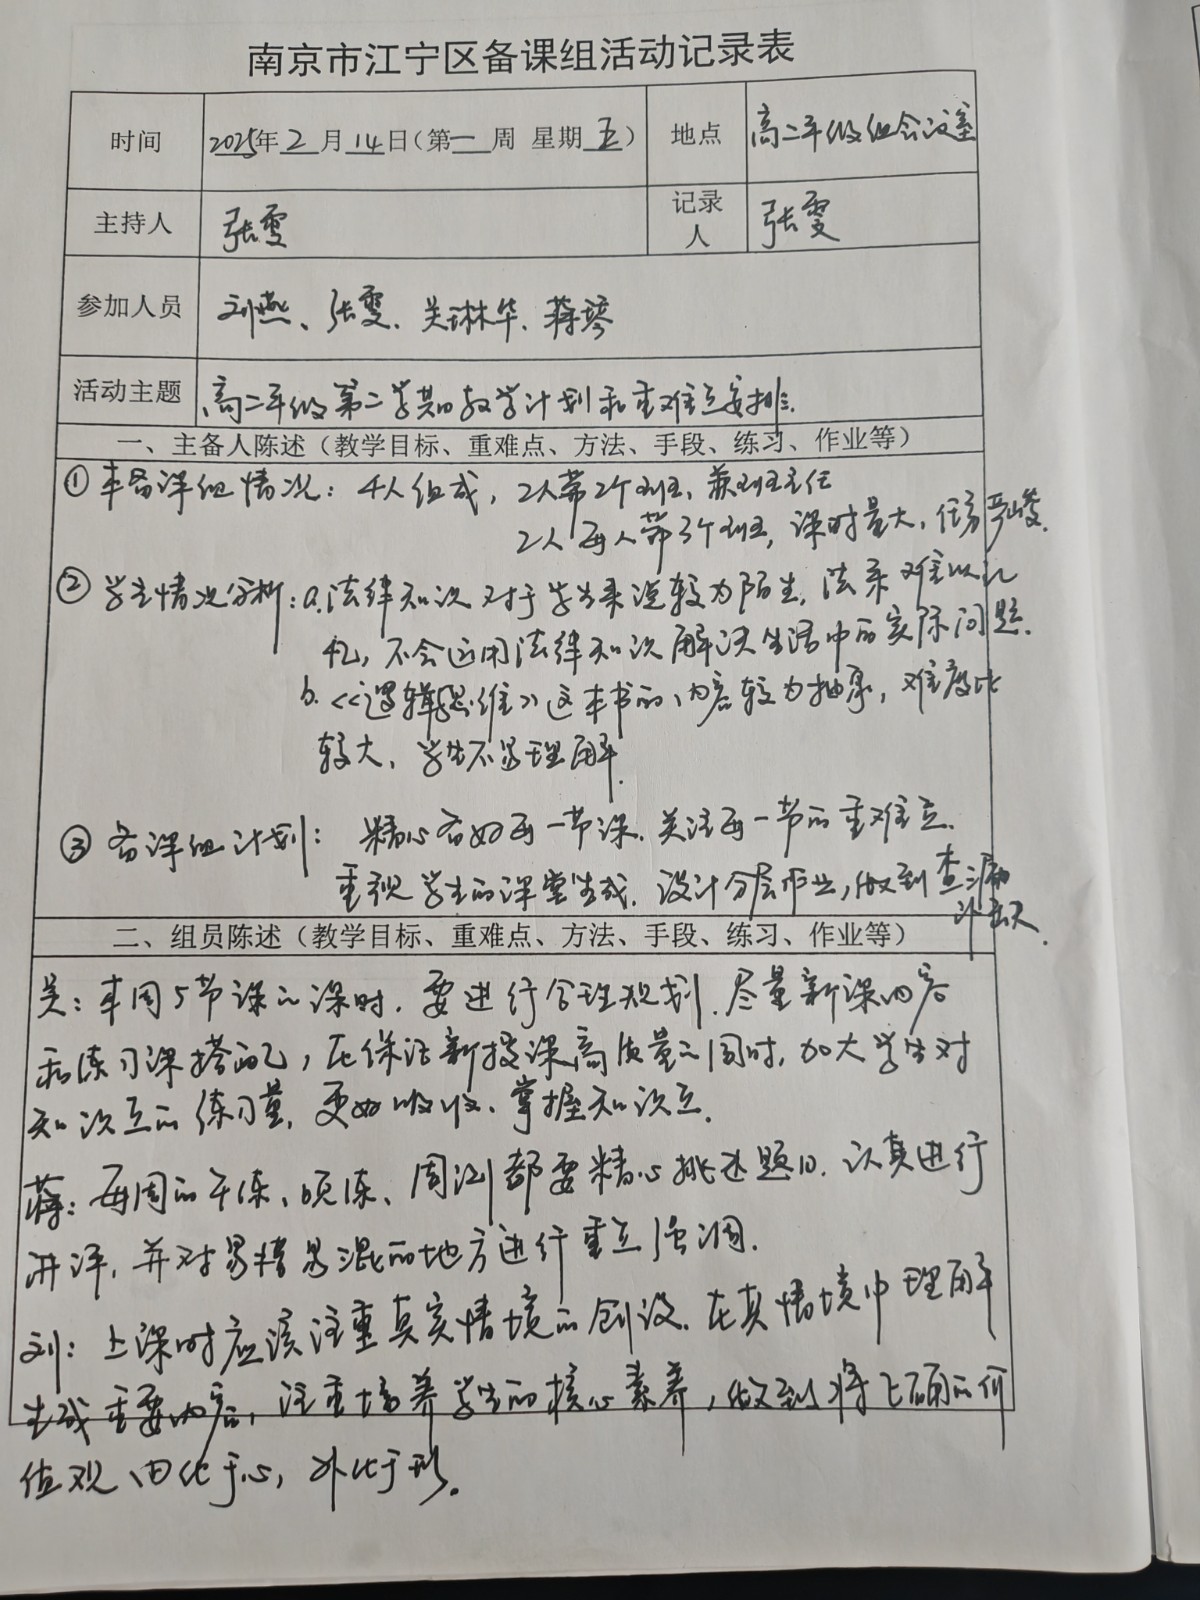 南京市江宁区备课组活动记录表
时间 2025年2月14日(第一周 星期五) 地点 高二年级组会议室
主持人 张雯 记录人 张雯
参加人员 刘燕、张雯、吴琳华、蒋琴
活动主题 高二年级第二学期教学计划和重难点安排.
一、主备人陈述(教学目标、重难点、方法、手段、练习、作业等)
① 本备课组情况: 4人组成, 2人带2个班, 兼班主任
2人每人带3个班, 课时量大, 任务严峻.
② 学生情况分析: a.法律知识对于学生来说较为陌生, 法条难以记
忆, 不会运用法律知识解决生活中的实际问题.
b.《逻辑思维》这本书的内容较为抽象, 难度比
较大, 学生不易理解.
③ 备课组计划: 精心备好每一节课. 关注每一节的重难点.
重视学生的课堂生成. 设计分层作业, 做到查漏
补缺.
二、组员陈述(教学目标、重难点、方法、手段、练习、作业等)
吴: 本周5节课的课时. 要进行合理规划. 尽量新课内容
和练习课搭配, 在保证新授课高质量的同时, 加大学生对
知识点的练习量, 更好吸收、掌握知识点.
蒋: 每周的午练、晚练、周测都要精心挑选题目. 认真进行
讲评, 并对易错易混的地方进行重点强调.
刘: 上课时应该注重真实情境的创设. 在真情境中理解
生成重要内容, 注重培养学生的核心素养, 做到将正确的价
值观内化于心, 外化于形.